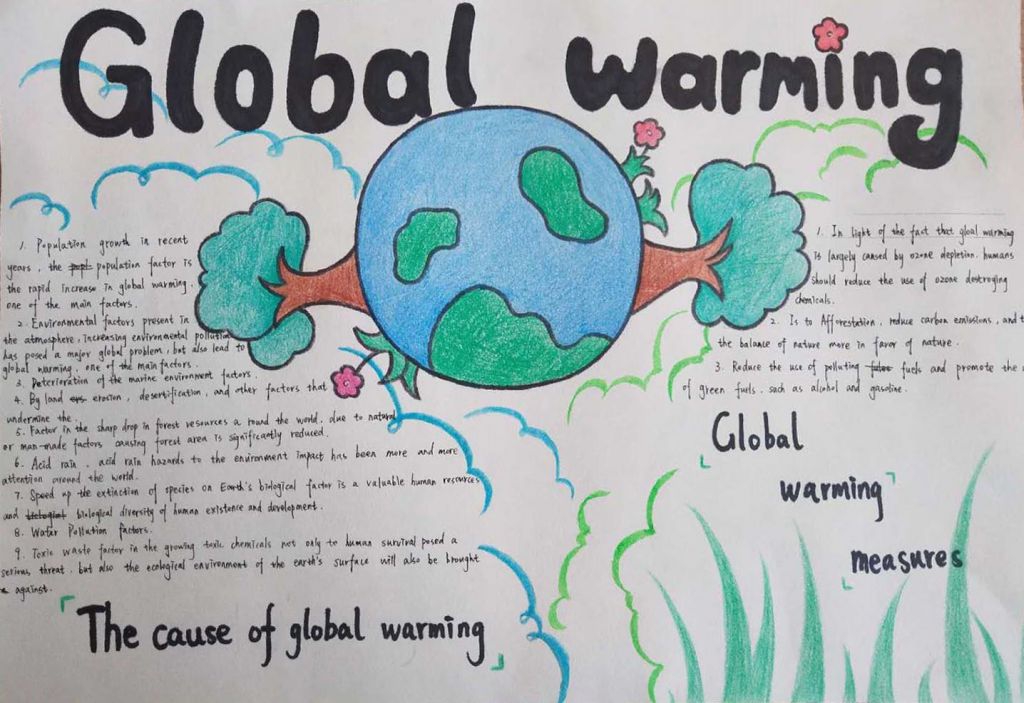 Global warming
1. Population growth in recent
years, the popul population factor is
the rapid increase in global warming.
one of the main factors.
2. Environmental factors present in
the atmosphere, increasing environmental pollution
has posed a major global problem, but also lead to
global warming, one of the main factors.
3. Deterioration of the marine environment factors.
4. By land erosion, desertification, and other factors that
undermine the.
5. Factor in the sharp drop in forest resources a round the world, due to natural
or man-made factors causing forest area is significantly reduced.
6. Acid rain, acid rain hazards to the environment impact has been more and more
attention around the world.
7. Speed up the extinction of species on Earth's biological factor is a valuable human resources
and biological diversity of human existence and development.
8. Water Pollution factors.
9. Toxic waste factor in the growing toxic chemicals not only to human survival posed a
serious threat, but also the ecological environment of the earth's surface will also be brought
against.
The cause of global warming
1. In light of the fact that gloal warming
is largely caused by ozone depletion, humans
should reduce the use of ozone destroying
chemicals.
2. Is to Afforestation, reduce carbon emissions, and
the balance of nature more in favor of nature.
3. Reduce the use of polluting fuels and promote the
of green fuels, such as alcohol and gasoline.
Global
warming
measures